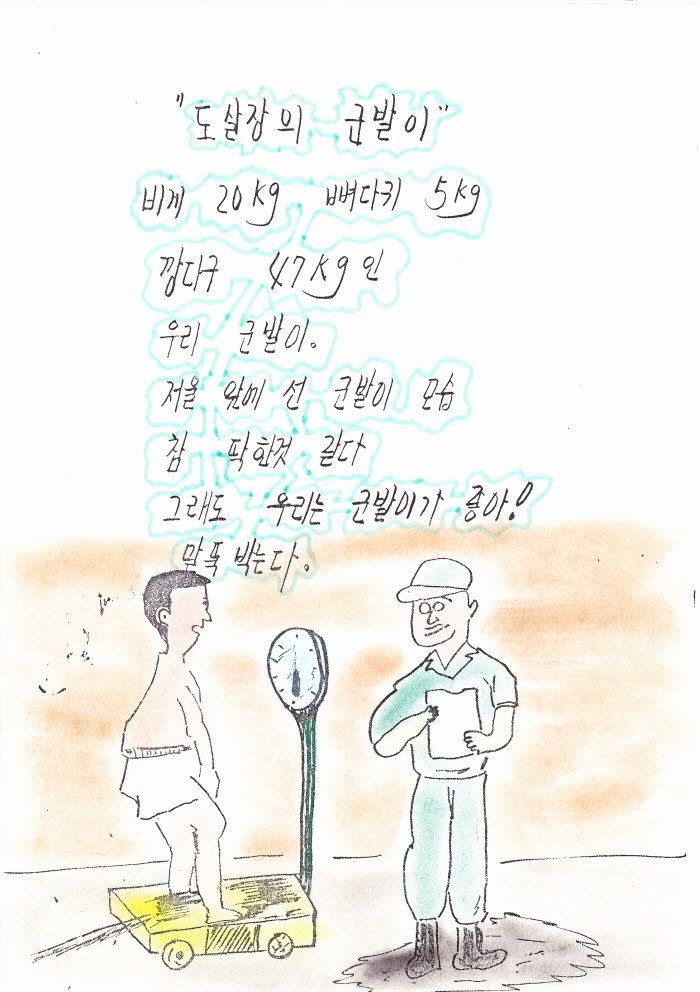 "도살장의 군발이"
비계 20kg 뼈다귀 5kg
깡다구 47kg인
우리 군발이.
저울 앞에 선 군발이 모습
참 딱한것 같다
그래도 우리는 군발이가 좋아!
말뚝 박는다.